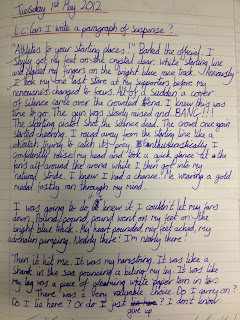 Tuesday 1st May 2012
L.C: Can I write a paragraph of suspense?
"Athletes to your starting places!" Barked the official. I
shyly got my feet on the crystal clear white starting line
and placed my fingers on the bright blue race track. Nervously
I took my one last stare at my supporters before my
nervousness changed to focus. All of a sudden a cover
of silence came over the crowded arena. I knew this was
time to go. The gun was slowly raised and.. BANG!!!
The starting pistol shot the silence dead. The crowd once again
started cheering. I raced away from the starting line like a
cheetah trying to catch its prey. Enthusiastically I
confidently raised my head and took a quick glance at the
fans all around the arena while I then got into my
natural stride. I knew I had a chance. Me wearing a gold
medal fastly ran through my mind.
I was going to do it I knew it I couldn't let my fans
down. Pound, pound, pound went on my feet on the
bright blue track. My heart pounded, my feet ached, my
adrenalin pumping. Nearly there. I'm nearly there
Then it hit me. It was my hamstring. It was like a
shark in the sea pouncing & biting my leg. It was like
my leg was a piece of gleaming white paper torn in two.
There was a very valuable choice. Do I carry on?
Do I lie here? Or do I just give up I don't know